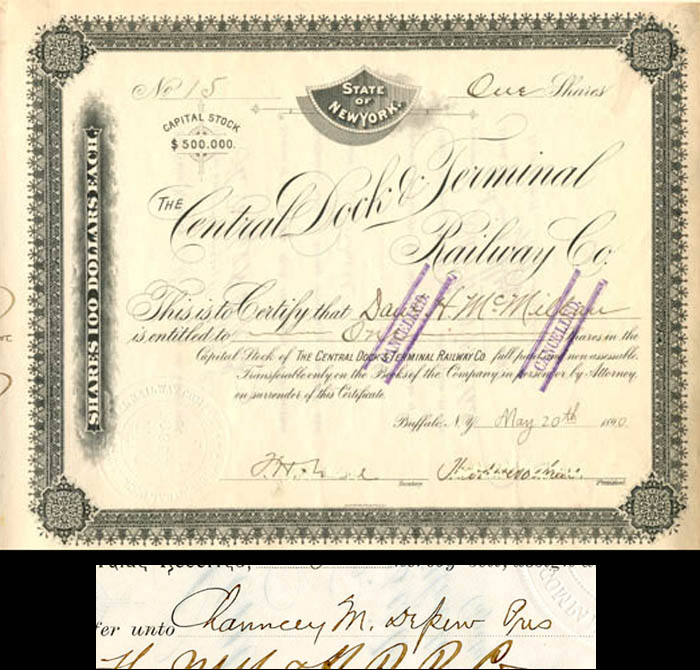 No 15
STATE OF NEW YORK.
One Shares
CAPITAL STOCK
$500.000.
SHARES 100 DOLLARS EACH.
THE Central Dock & Terminal
Railway Co.
This is to Certify that Daniel H. McMillan
is entitled to One Shares in the
Capital Stock of THE CENTRAL DOCK & TERMINAL RAILWAY CO. full paid and non assessable.
Transferable only on the Books of the Company in person or by Attorney
on surrender of this Certificate.
CANCELLED.
CANCELLED.
Buffalo, N.Y. May 20th 1890.
Secretary
President
fer unto Chauncey M. Depew Pres